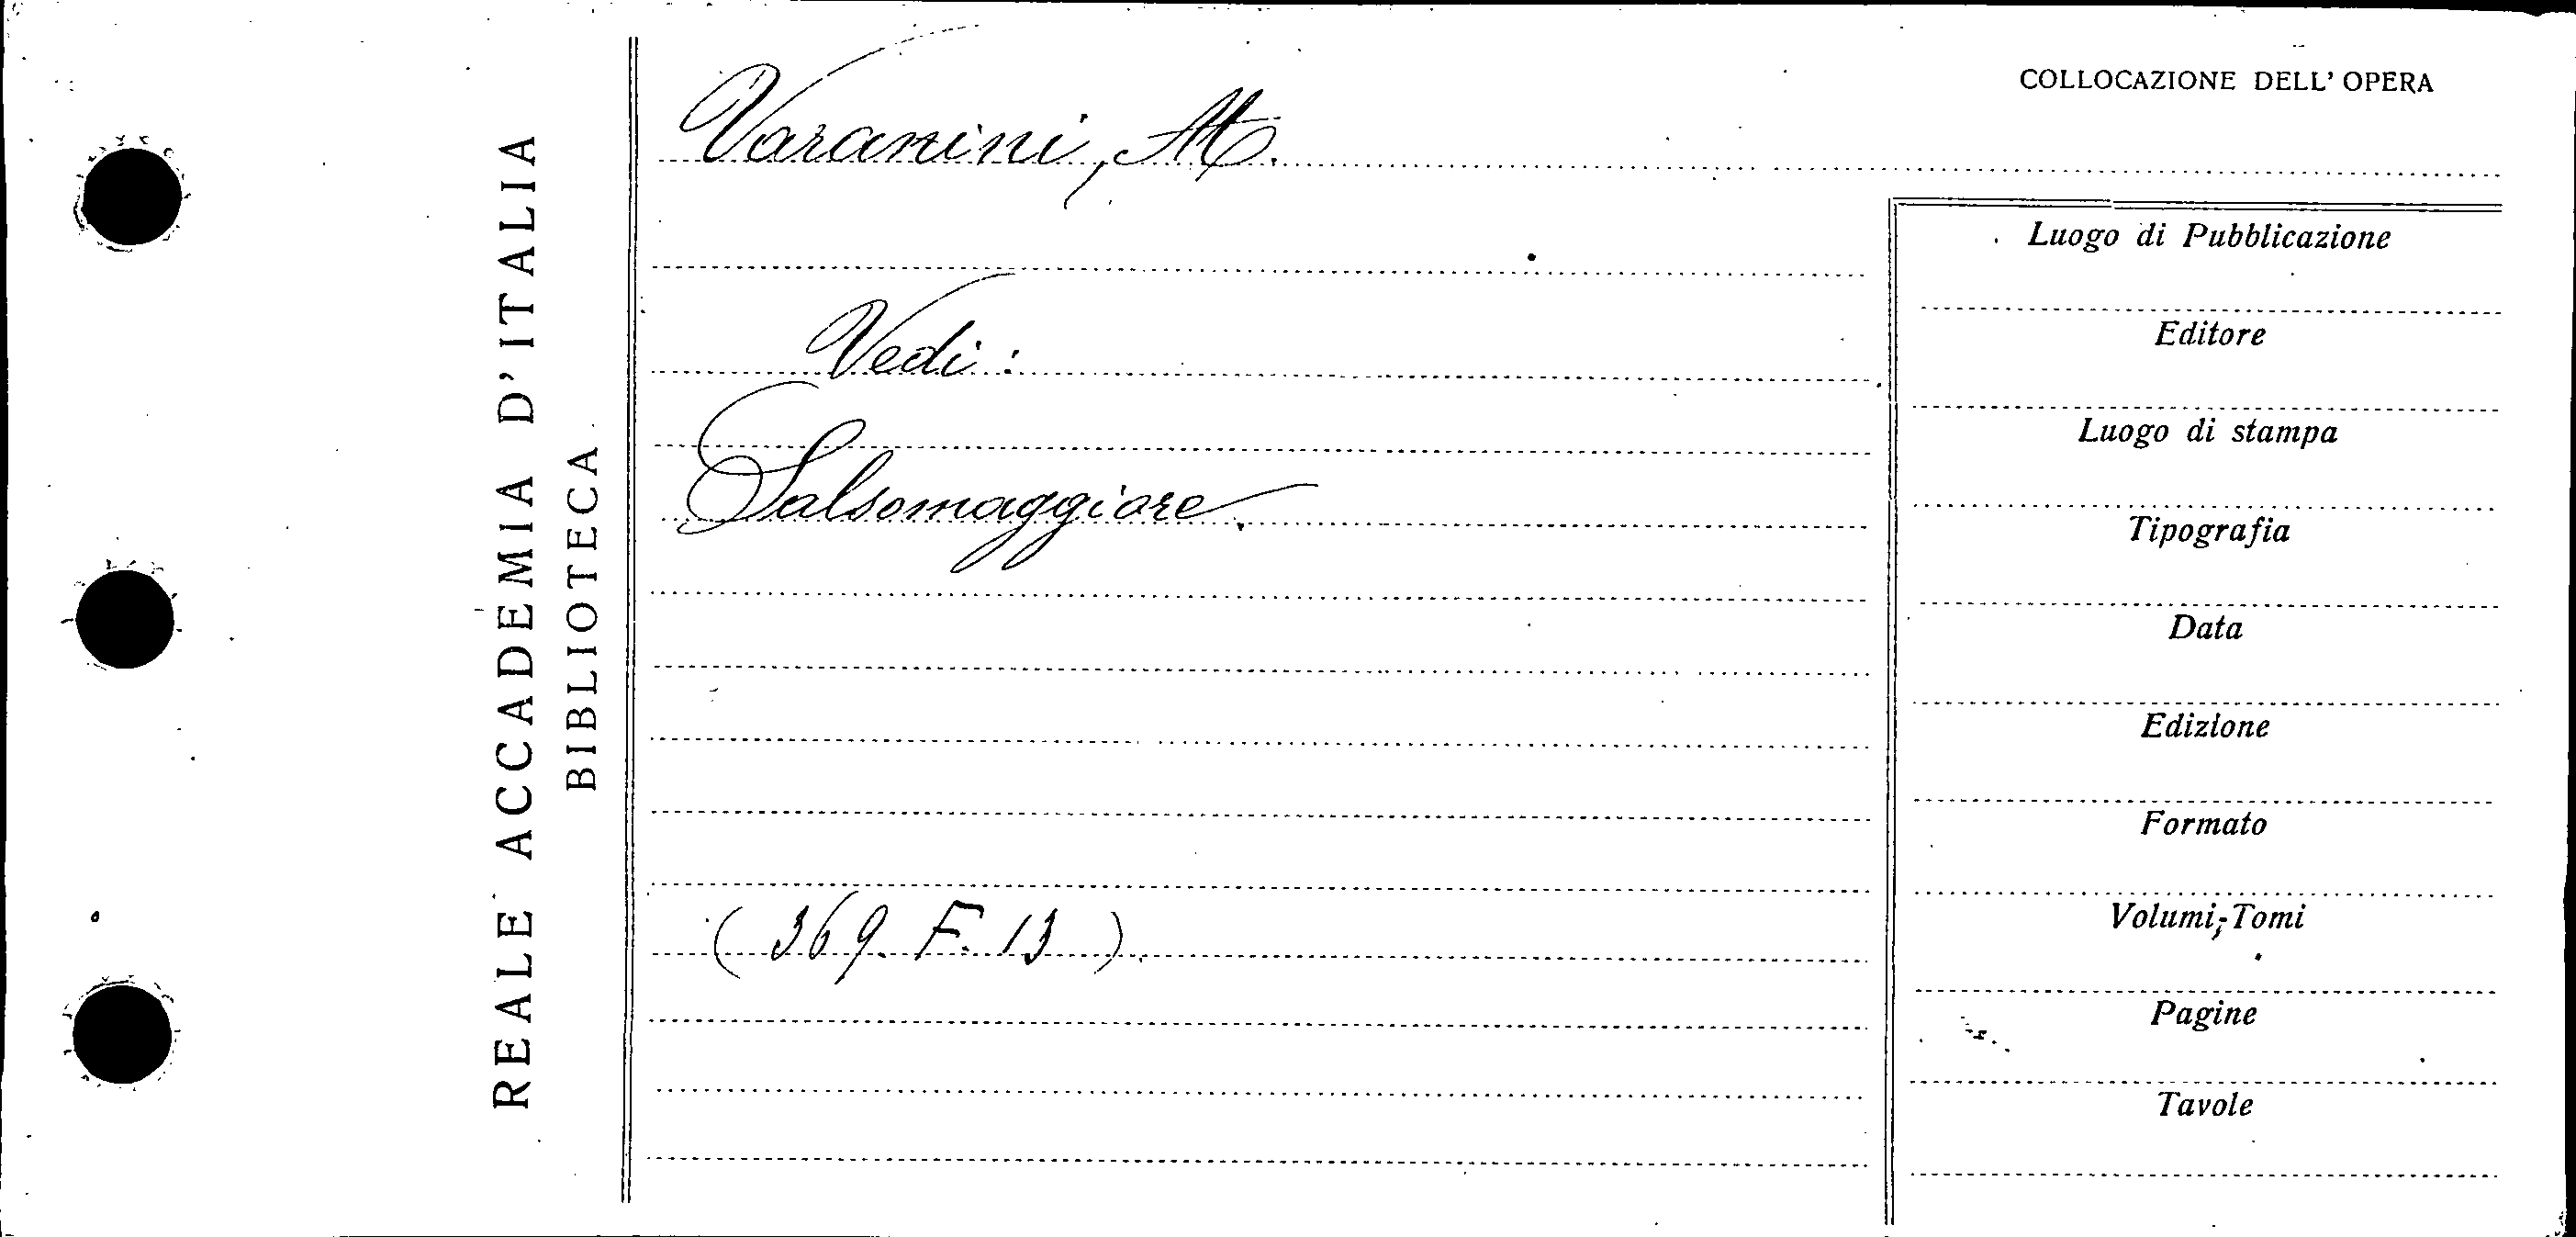 REALE ACCADEMIA D'ITALIA
BIBLIOTECA
Varanini, M.
Vedi:
Salsomaggiore.
(369. F. 13).
COLLOCAZIONE DELL'OPERA
Luogo di Pubblicazione
Editore
Luogo di stampa
Tipografia
Data
Edizione
Formato
Volumi, Tomi
Pagine
Tavole